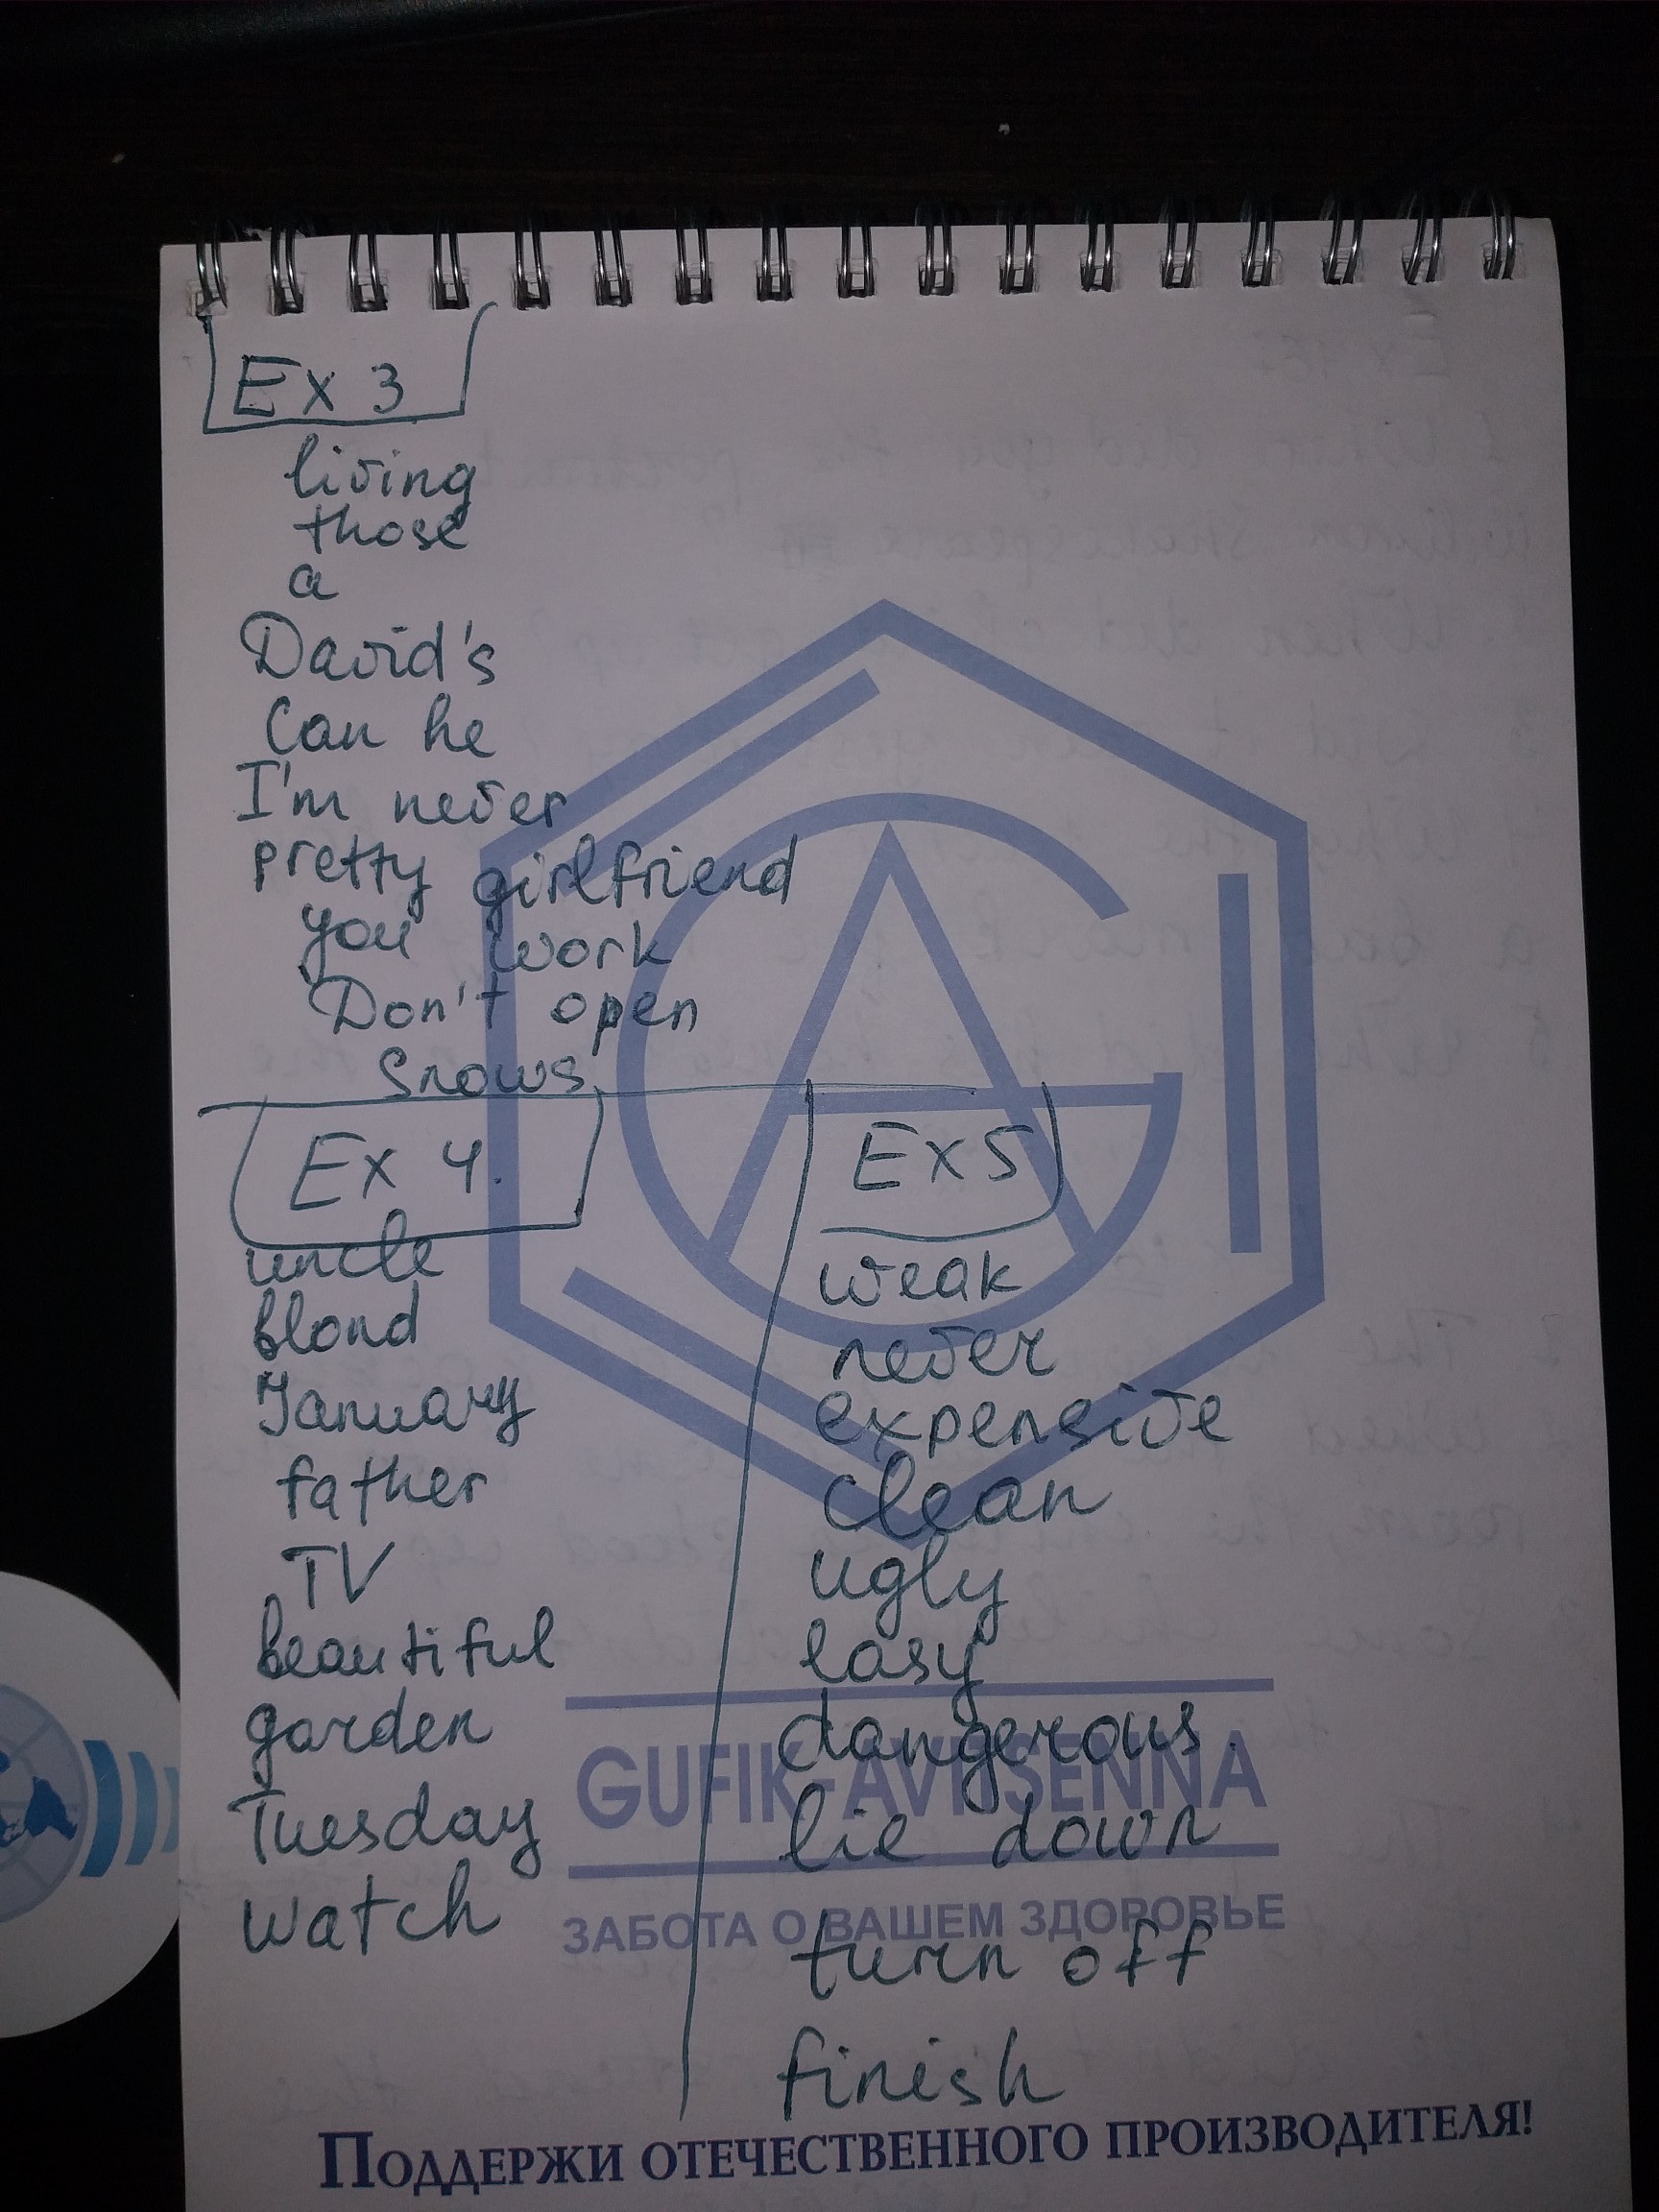 Ex 3
living
those
a
David's
Can he
I'm never
pretty girlfriend
you work
Don't open
Snows
Ex 4.
uncle
blond
January
father
TV
beautiful
garden
Tuesday
watch
Ex 5
weak
never
expensive
clean
ugly
easy
dangerous.
lie down
turn off
finish
GUFIK-AVITSENNA
ЗАБОТА О ВАШЕМ ЗДОРОВЬЕ
ПОДДЕРЖИ ОТЕЧЕСТВЕННОГО ПРОИЗВОДИТЕЛЯ!